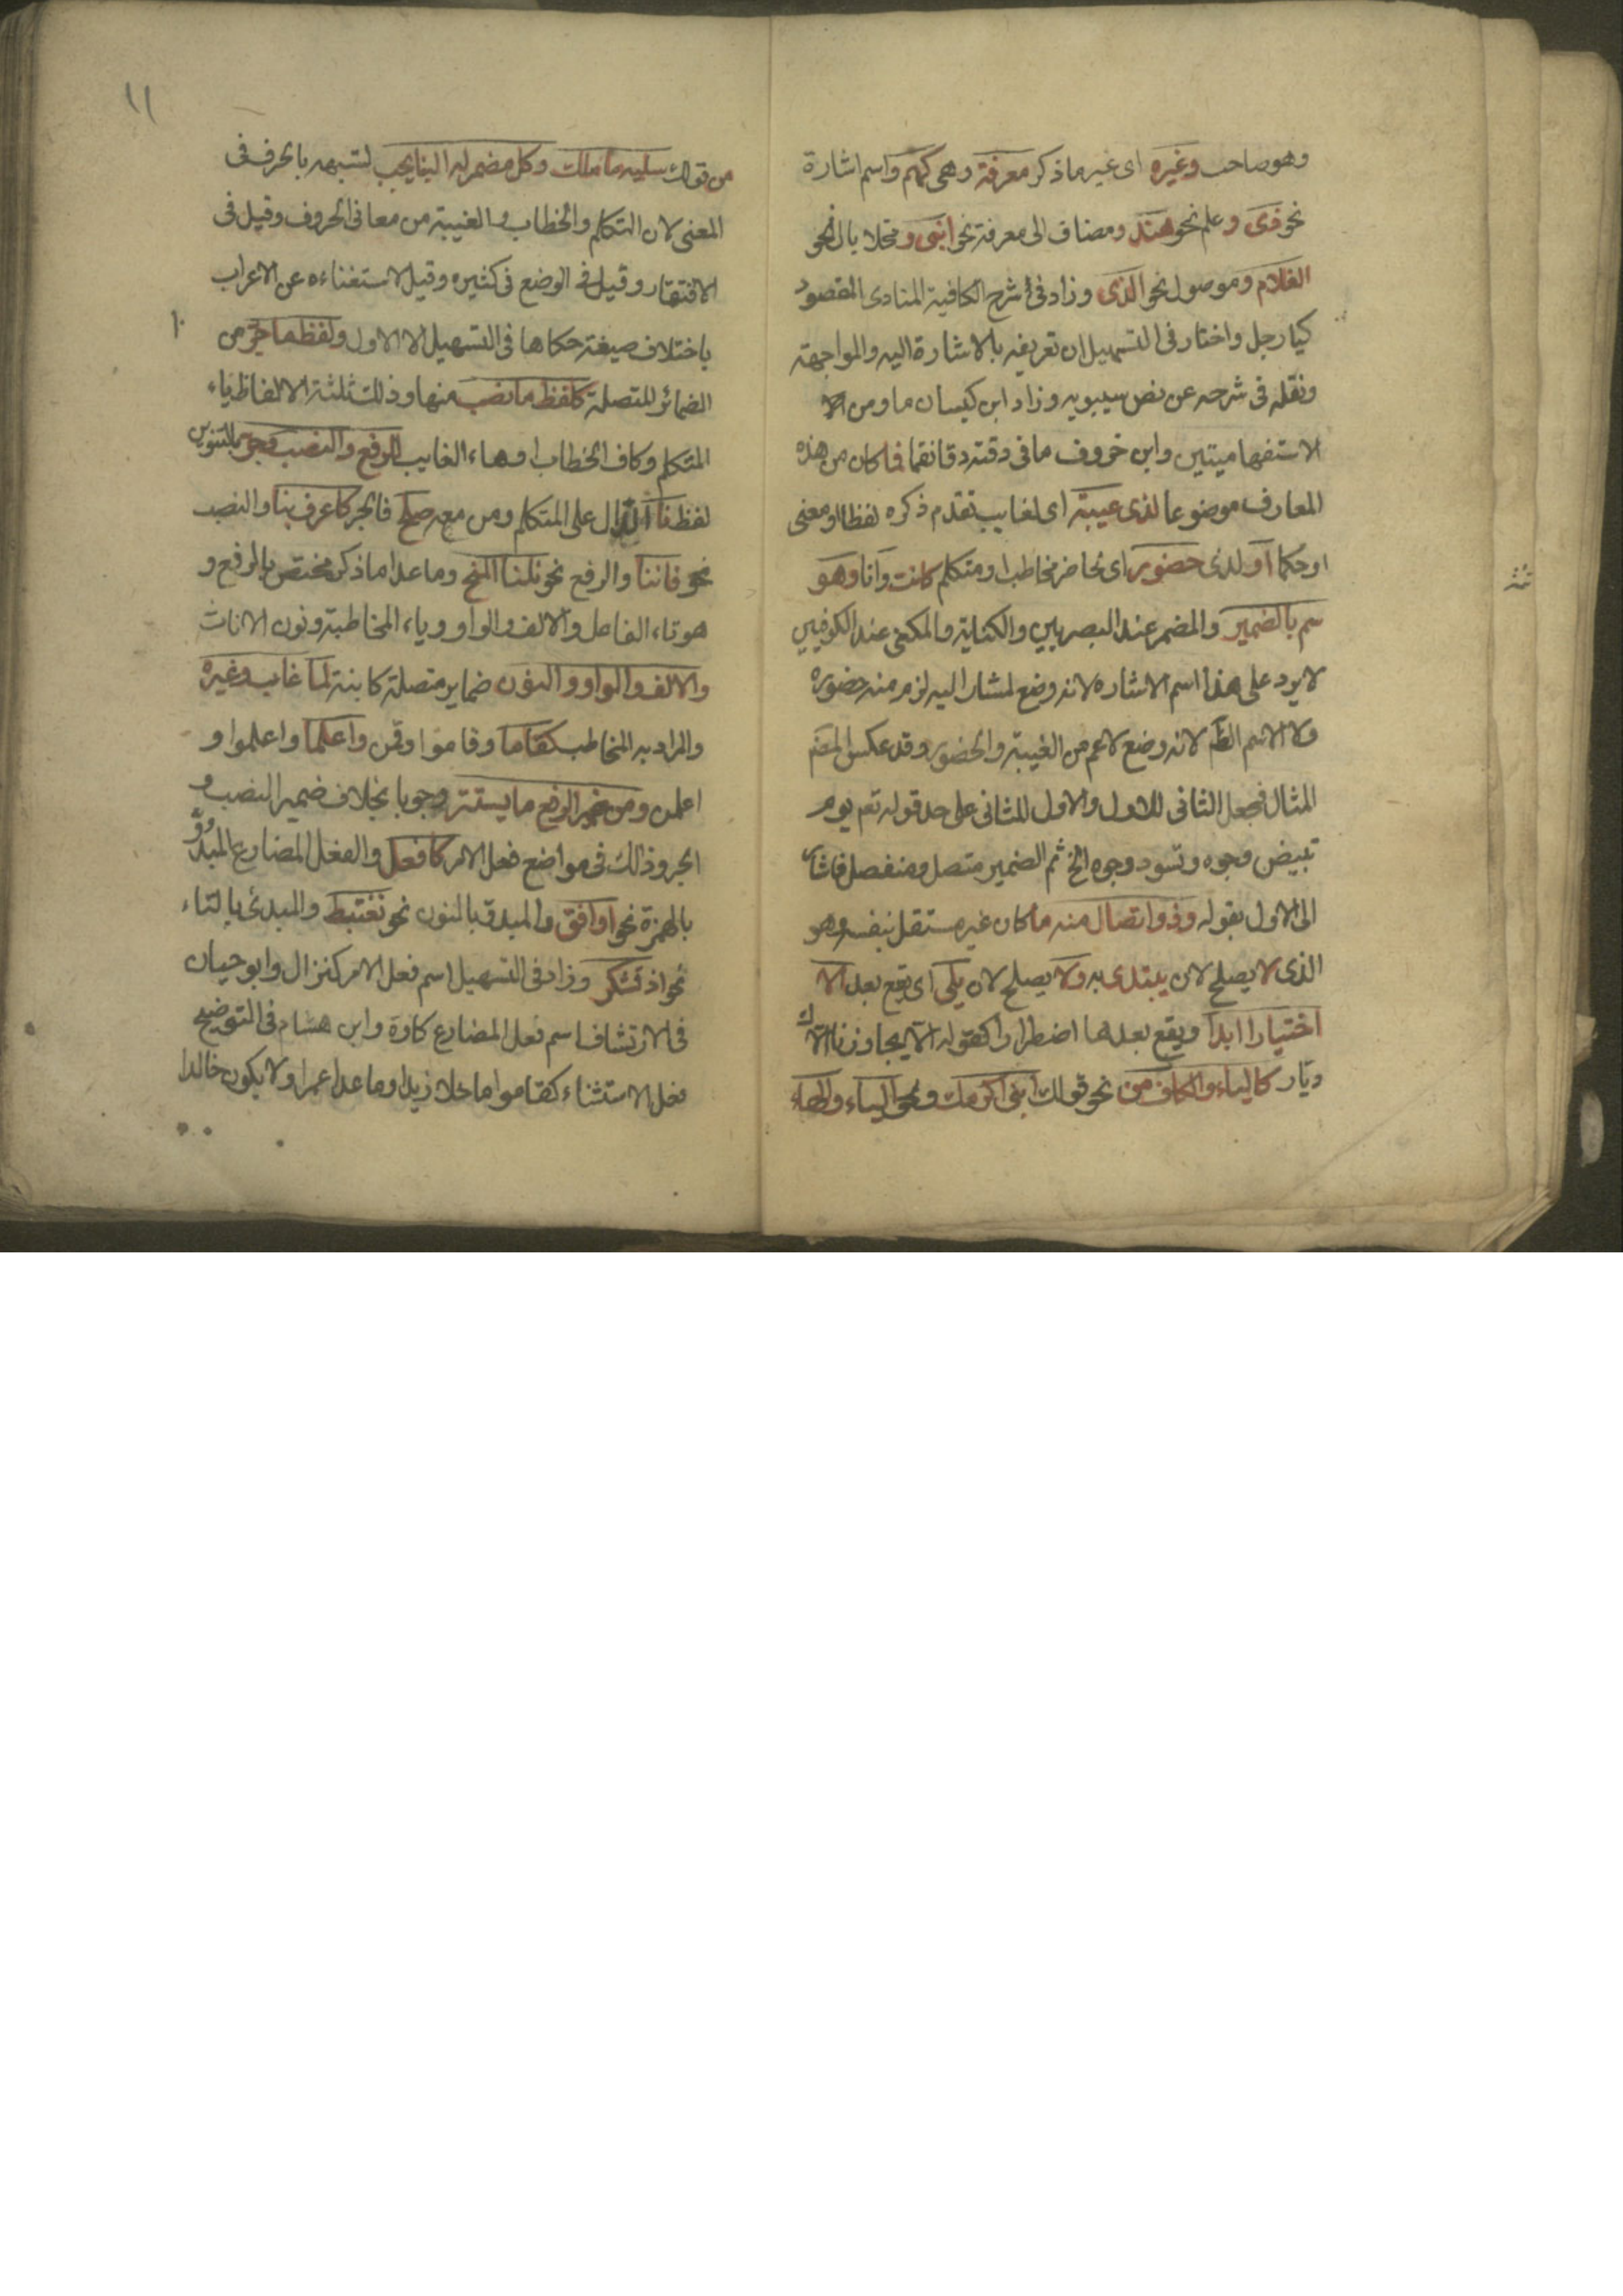 وهو صاحب وغيره اى غير ما ذكر معرفة وهى كهم واسم اشارة
نحو ذى وعلم نحو هند ومضاف الى معرفة نحو ابنى ومحلا بال نحو
الغلام وموصول نحو الذى وزاد فى شرح الكافية المنادى المقصود
كيا رجل واختار فى التسهيل ان تعريفه بالاشارة اليه والمواجهة
ونقله فى شرحه عن نص سيبويه وزاد ابن كيسان ما ومن
الاستفهاميتين وابن خروف ما فى دققته دقا نعما فما كان من هذه
المعارف موضوعا لذى غيبة اى لغايب تقدم ذكره لفظا او معنى
او حكما او لذى حضور اى لحاضر مخاطب او متكلم كانت وانا وهو
سم بالضمير والمضمر عند البصريين والكناية والمكنى عند الكوفيين
لا يرد على هذا اسم الاشاره لانه وضع لمشار اليه لزم منه حضوره
ولا الاسم الظم لانه وضع لاعم من الغيبة والحضور وقد عكس المصنم
المثال فجعل الثانى للاول والاول للثانى على حد قوله تعم يوم
تبيض وجوه وتسود وجوه الخ ثم الضمير متصل ومنفصل فاشار
الى الاول بقوله وذو اتصال منه ما كان غير مستقل بنفسه وهو
الذى لا يصلح لان يبتدى به ولا يصلح لان يلى اى يقع بعد الا
اختيارا ابدا ويقع بعدها اضطرارا كقوله الا يجاورنا الاك
ديار كالياء والكاف من نحو قولك ابنى اكرمك ونحو الياء والهاء
١١
من قولك سليه ما ملك وكل مضمر له البنا يجب لشبهه بالحرف فى
المعنى لان التكلم والخطاب والغيبة من معانى الحروف وقيل فى
الافتقار وقيل فى الوضع فى كثيره وقيل لاستغناءه عن الاعراب
باختلاف صيغته حكاها فى التسهيل الا الاول ولفظ ما جر من
١٠
الضمائر المتصلة كلفظ ما نصب منها وذلك ثلثة الالفاظ ياء
المتكلم وكاف الخطاب وهاء الغايب للرفع والنصب وجر بالتنوين
لفظ نا الدال على المتكلم ومن معه صلح فالجر كاعرف بنا والنصب
نحو فاننا والرفع نحو نلنا المنح وما عدا ما ذكر مختص بالرفع و
هو تاء الفاعل والالف والواو وياء المخاطبة ونون الاناث
والالف والواو والنون ضماير متصلة كاينة لما غاب وغيره
والمراد به المخاطب كقاما وقاموا وقمن واعلما واعلموا و
اعلمن ومن ضمير الرفع ما يستتر وجوبا بخلاف ضمير النصب و
الجر وذلك فى مواضع فعل الامر كافعل والفعل المضارع المبدو
بالهمزة نحو اوافق والمبدو بالنون نحو نغتبط والمبدئ بالتاء
نحو اذ تشكر وزاد فى التسهيل اسم فعل الامر كنزال وابو حيان
فى الارتشاف اسم فعل المضارع كاوه وابن هشام فى التوضيح
فعل الاستثناء كقاموا ما خلا زيدا وما عدا عمرا ولا يكون خالدا